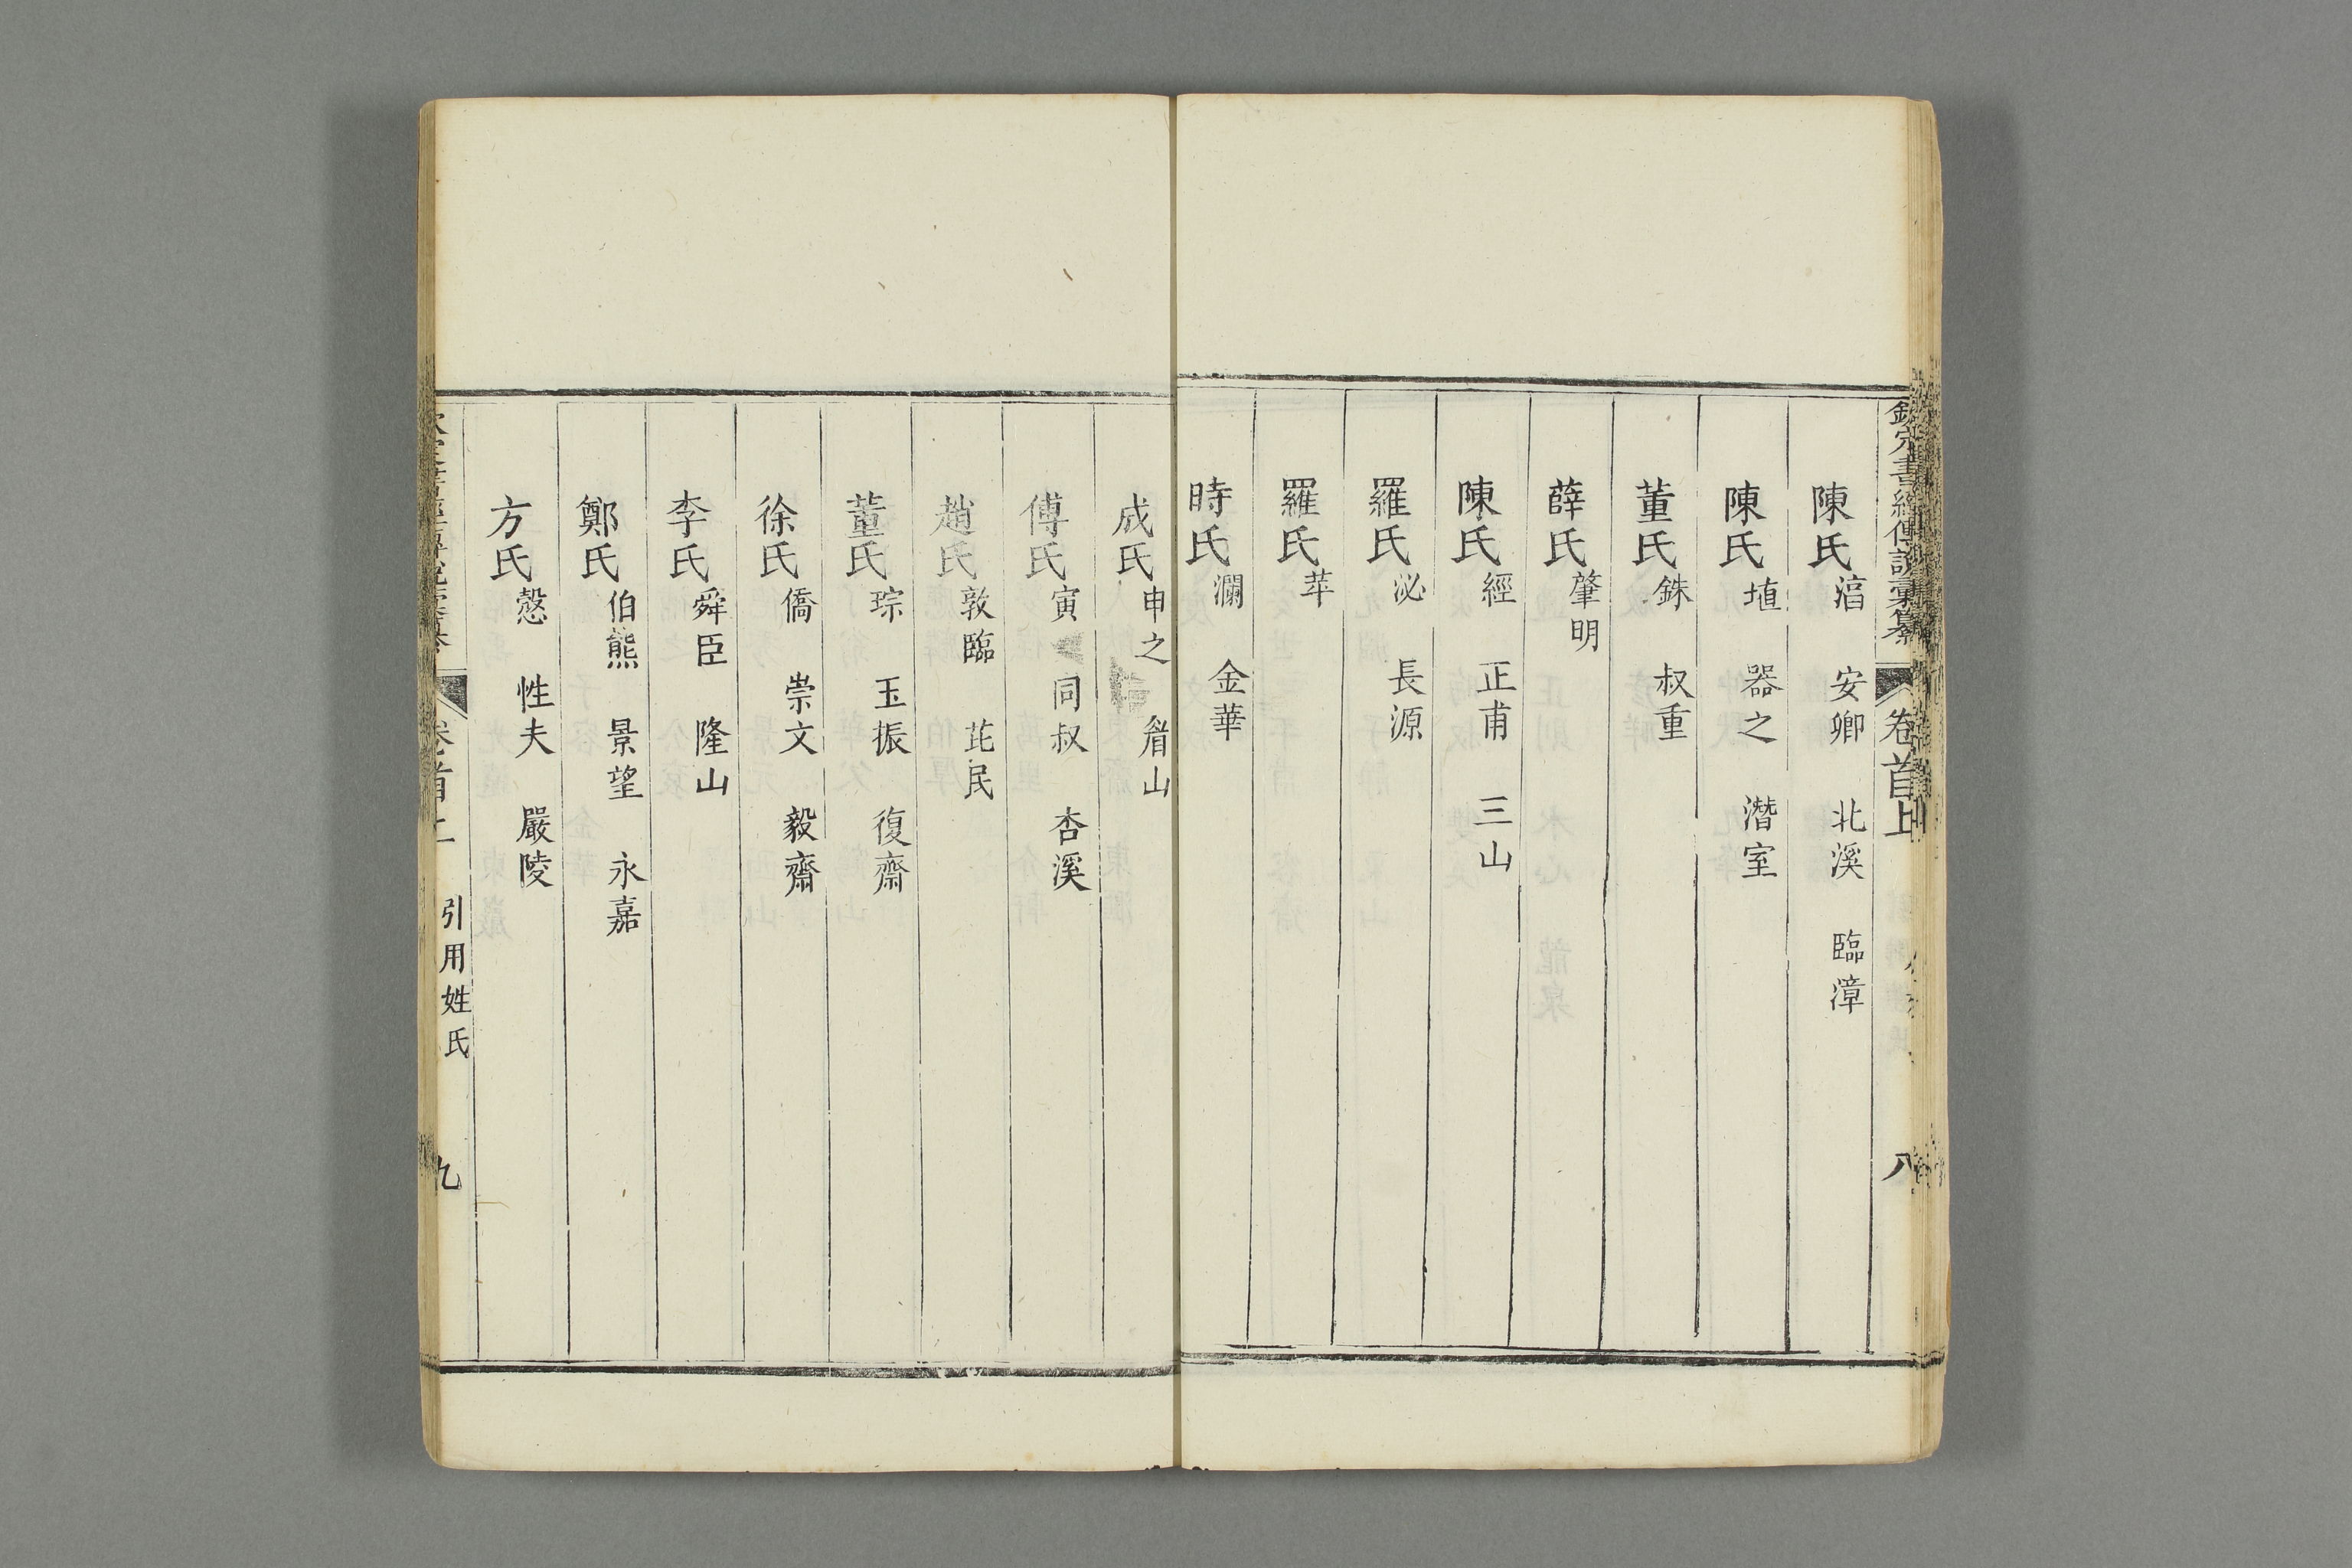 欽定書經傳說彙纂 卷首上 八
陳氏 淳 安卿 北溪 臨漳
陳氏 埴 器之 潛室
董氏 銖 叔重
薛氏 肇明
陳氏 經 正甫 三山
羅氏 泌 長源
羅氏 苹
時氏 瀾 金華
成氏 申之 眉山
傅氏 寅 同叔 杏溪
趙氏 敦臨 芘民
董氏 琮 玉振 復齋
徐氏 僑 崇文 毅齋
李氏 舜臣 隆山
鄭氏 伯熊 景望 永嘉
方氏 慤 性夫 嚴陵
卷首上 引用姓氏 九